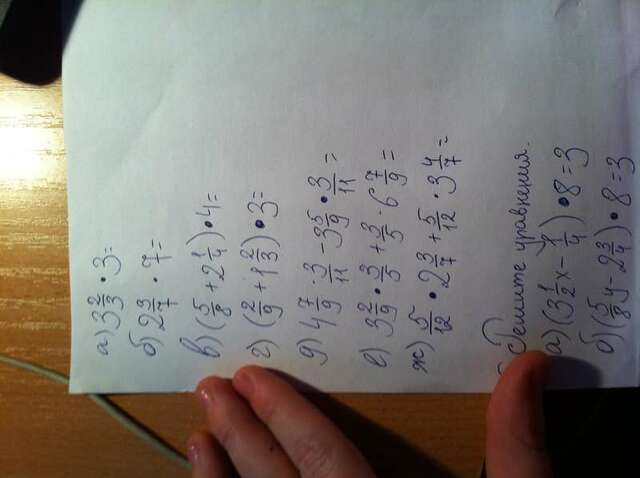 а) 3 2/3 · 3=
б) 2 3/7 · 7=
в) (5/8 + 2 1/4) · 4=
г) (2/9 + 1 2/3) · 3=
д) 4 7/9 · 3/11 - 3 5/9 · 3/11 =
е) 3 2/9 · 3/5 + 3/5 · 6 7/9 =
ж) 5/12 · 2 3/7 + 5/12 · 3 4/7 =
Решите уравнения.
а) (3 1/2 x - 1/4) · 8 = 3
б) (5/8 y - 2 3/4) · 8 = 3